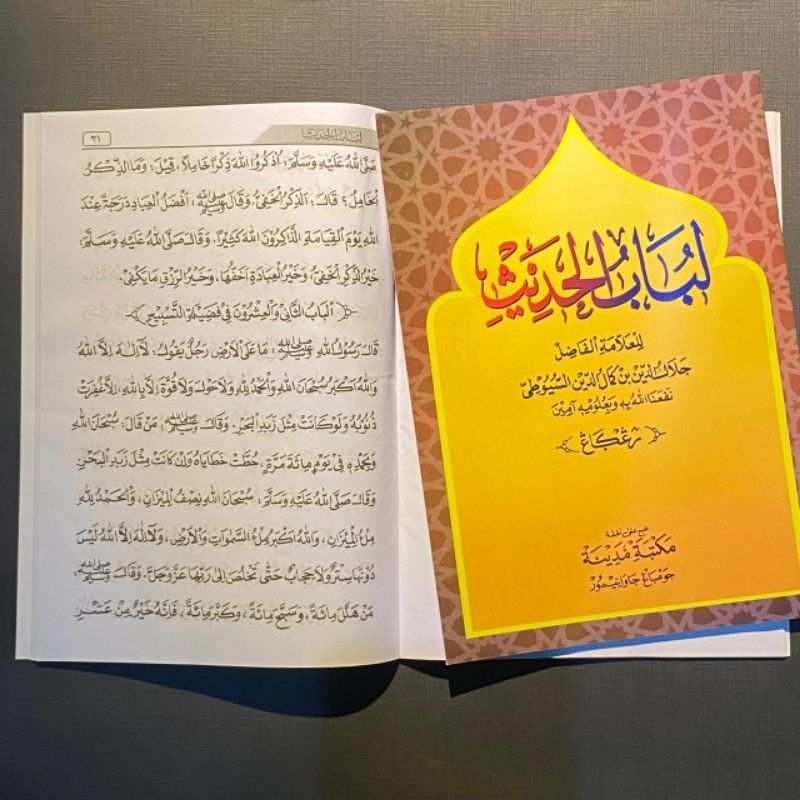 ٣١
لباب الحديث
صَلَّى اللهُ عَلَيْهِ وَسَلَّمَ: اُذْكُرُوا اللهَ ذِكْرًا خَامِلًا، قِيْلَ: وَمَا الذِّكْرُ
الْخَامِلُ؟ قَالَ: اَلذِّكْرُ الْخَفِيُّ. وَقَالَ ﷺ: أَفْضَلُ الْعِبَادِ دَرَجَةً عِنْدَ
اللهِ يَوْمَ الْقِيَامَةِ الذَّاكِرُوْنَ اللهَ كَثِيْرًا. وَقَالَ صَلَّى اللهُ عَلَيْهِ وَسَلَّمَ:
خَيْرُ الذِّكْرِ الْخَفِيُّ، وَخَيْرُ الْعِبَادَةِ أَخَفُّهَا، وَخَيْرُ الرِّزْقِ مَا يَكْفِىْ.
﴿ اَلْبَابُ الثَّانِيْ وَالْعِشْرُوْنَ فِيْ فَضِيْلَةِ التَّسْبِيْحِ ﴾
قَالَ رَسُوْلُ اللهِ ﷺ: مَا عَلَى الْأَرْضِ رَجُلٌ يَقُوْلُ: لَا اِلٰهَ اِلَّا اللهُ
وَاللهُ اَكْبَرُ سُبْحَانَ اللهِ وَالْحَمْدُ لِلّٰهِ وَلَا حَوْلَ وَلَا قُوَّةَ اِلَّا بِاللهِ، اِلَّا غُفِرَتْ
ذُنُوْبُهُ وَلَوْ كَانَتْ مِثْلَ زَبَدِ الْبَحْرِ. وَقَالَ ﷺ: مَنْ قَالَ: سُبْحَانَ اللهِ
وَبِحَمْدِهِ فِيْ يَوْمٍ مِائَةَ مَرَّةٍ، حُطَّتْ خَطَايَاهُ وَاِنْ كَانَتْ مِثْلَ زَبَدِ الْبَحْرِ.
وَقَالَ صَلَّى اللهُ عَلَيْهِ وَسَلَّمَ: سُبْحَانَ اللهِ نِصْفُ الْمِيْزَانِ، وَالْحَمْدُ لِلّٰهِ
مِلْءُ الْمِيْزَانِ، وَاللهُ اَكْبَرُ مِلْءُ السَّمٰوَاتِ وَالْأَرْضِ، وَلَا اِلٰهَ اِلَّا اللهُ لَيْسَ
دُوْنَهَا سِتْرٌ وَلَا حِجَابٌ حَتّٰى تَخْلُصَ اِلَى رَبِّهَا عَزَّ وَجَلَّ. وَقَالَ ﷺ:
مَنْ هَلَّلَ مِائَةً، وَسَبَّحَ مِائَةً، وَكَبَّرَ مِائَةً، فَاِنَّهُ خَيْرٌ مِنْ عَشْرِ
لُبَابُ الْحَدِيْثِ
لِلْعَلَّامَةِ الْفَاضِلْ
جَلَالُ الدِّيْنِ بْنِ كَمَالِ الدِّيْنِ السُّيُوْطِيّ
نَفَعَنَا اللهُ بِهِ وَبِعُلُوْمِهِ آمِيْن
طبع على نفقة
مَكْتَبَة مَدِيْنَة
جومباڠ جاوا تيمور